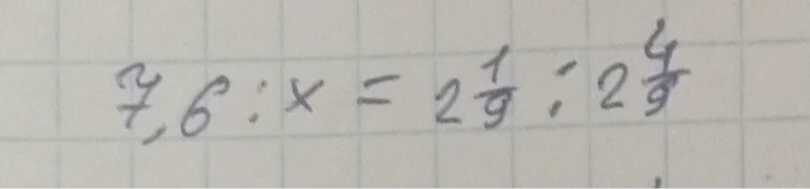 7,6 : x = 2 1/9 : 2 4/9